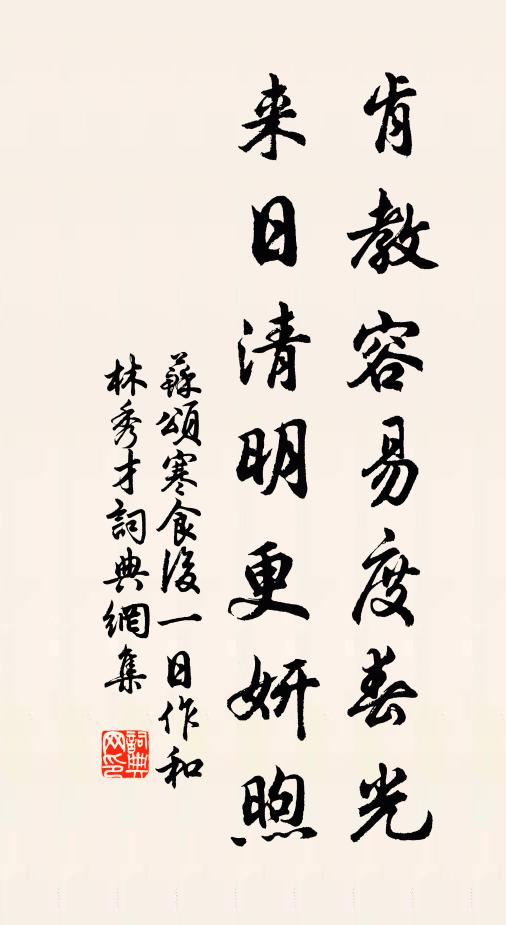 肯教容易度春光
来日清明更妍煦
蘇頌寒食後一日作和
林秀才詞典網集
詞典
网印